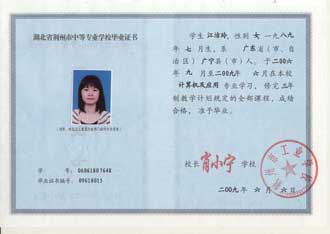 湖北省荆州市中等专业学校毕业证书
学 号: 06061807648
毕业证书编号: 09618015
学生江 玲, 性别 女 一九八九
年 七 月生, 系 广东省(市、自
治区) 广宁县(市)人。于二〇〇六
年 九 月至二〇〇九 年 六 月在本校
计算机及应用 专业学习, 修完 三年
制教学计划规定的全部课程, 成绩
合格, 准予毕业。
校长 肖小宁 学校
二〇〇九 年 六 月 六 日
荆州市工业学校